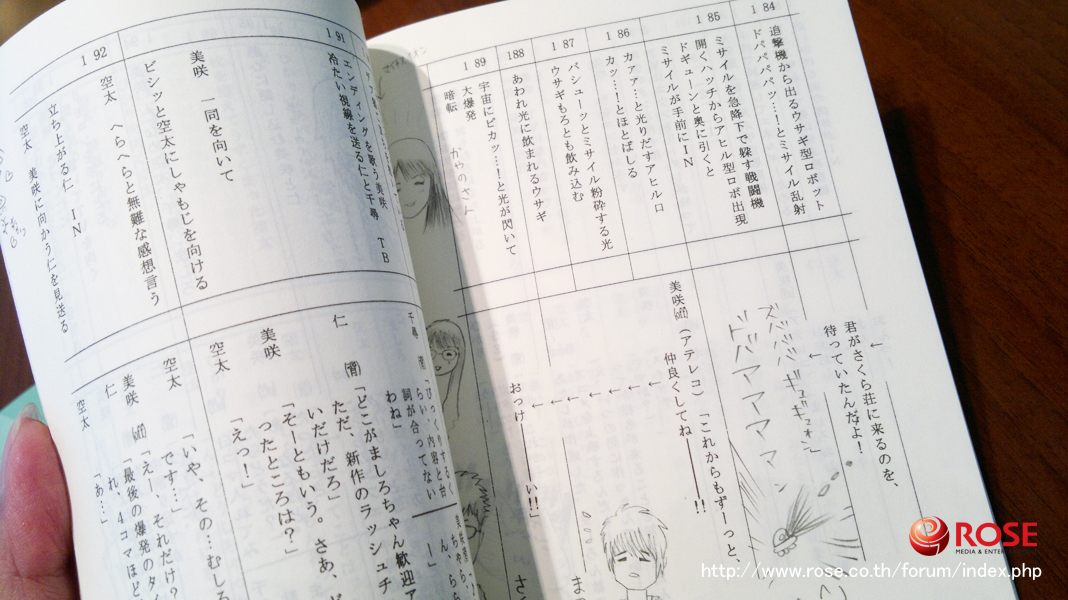 184
追撃機から出るウサギ型ロボット
ドパパパパッ…!とミサイル乱射
185
ミサイルを急降下で躱す戦闘機
開くハッチからアヒル型ロボ出現
ドギューンと奥に引くと
ミサイルが手前にＩＮ
186
カァァ…と光りだすアヒルロ
カッ…!とほとばしる
187
バシューッとミサイル粉砕する光
ウサギもろとも飲み込む
188
あわれ光に飲まれるウサギ
189
宇宙にピカッ…!と光が閃いて
大爆発
暗転
かやのさん
君がさくら荘に来るのを、
待っていたんだよ!
美咲㈹(アテレコ)「これからもずーっと、
仲良くしてね――!!
おっけ――い!!」
191
エンディングを歌う美咲　ＴＢ
冷たい視線を送る仁と千尋
美咲　一同を向いて
ビシッと空太にしゃもじを向ける
192
空太　へらへらと無難な感想言う
立ち上がる仁　ＩＮ
空太　美咲に向かう仁を見送る
千尋
「びっくりするく
らい、内容と台
詞が合ってない
わね」
仁
「どこがましろちゃん歓迎ア
ただ、新作のラッシュチ
いだけだろ」
美咲
「そーともいう。さあ、ど
ったところは?」
空太
「えっ!」
空太
「いや、その…むしろ
です…」
美咲
「えー、それだけ?
仁
「最後の爆発のタイ
れ、4コマほど
空太
「あ…」
ROSE
MEDIA & ENTER
http://www.rose.co.th/forum/index.php